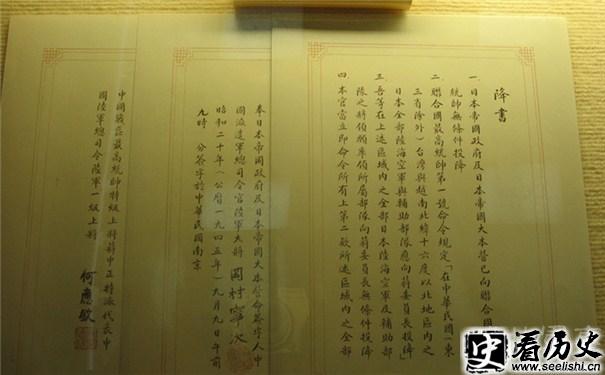 降書
一 日本帝國政府及日本帝國大本營已向聯合國
統帥無條件投降
二 聯合國最高統帥第一號命令規定「在中華民國（東
三省除外）台灣與越南北緯十六度以北地區內之
日本全部陸海空軍與輔助部隊應向蔣委員長投降」
三 吾等在上述區域內之全部日本陸海空軍及輔助部
隊之將領願率領所屬部隊向蔣委員長無條件投降
四 本官當立即命令所有上第二款所述區域內之全部
奉日本帝國政府及日本帝國大本營命簽字人中
國派遣軍總司令官陸軍大將 岡村寧次
昭和二十年（公曆一九四五年）九月九日午前
九時 分簽字於中華民國南京
中國戰區最高統帥特級上將蔣中正特派代表中
國陸軍總司令陸軍一級上將
何應欽
史 看历史
www.seelishi.cn